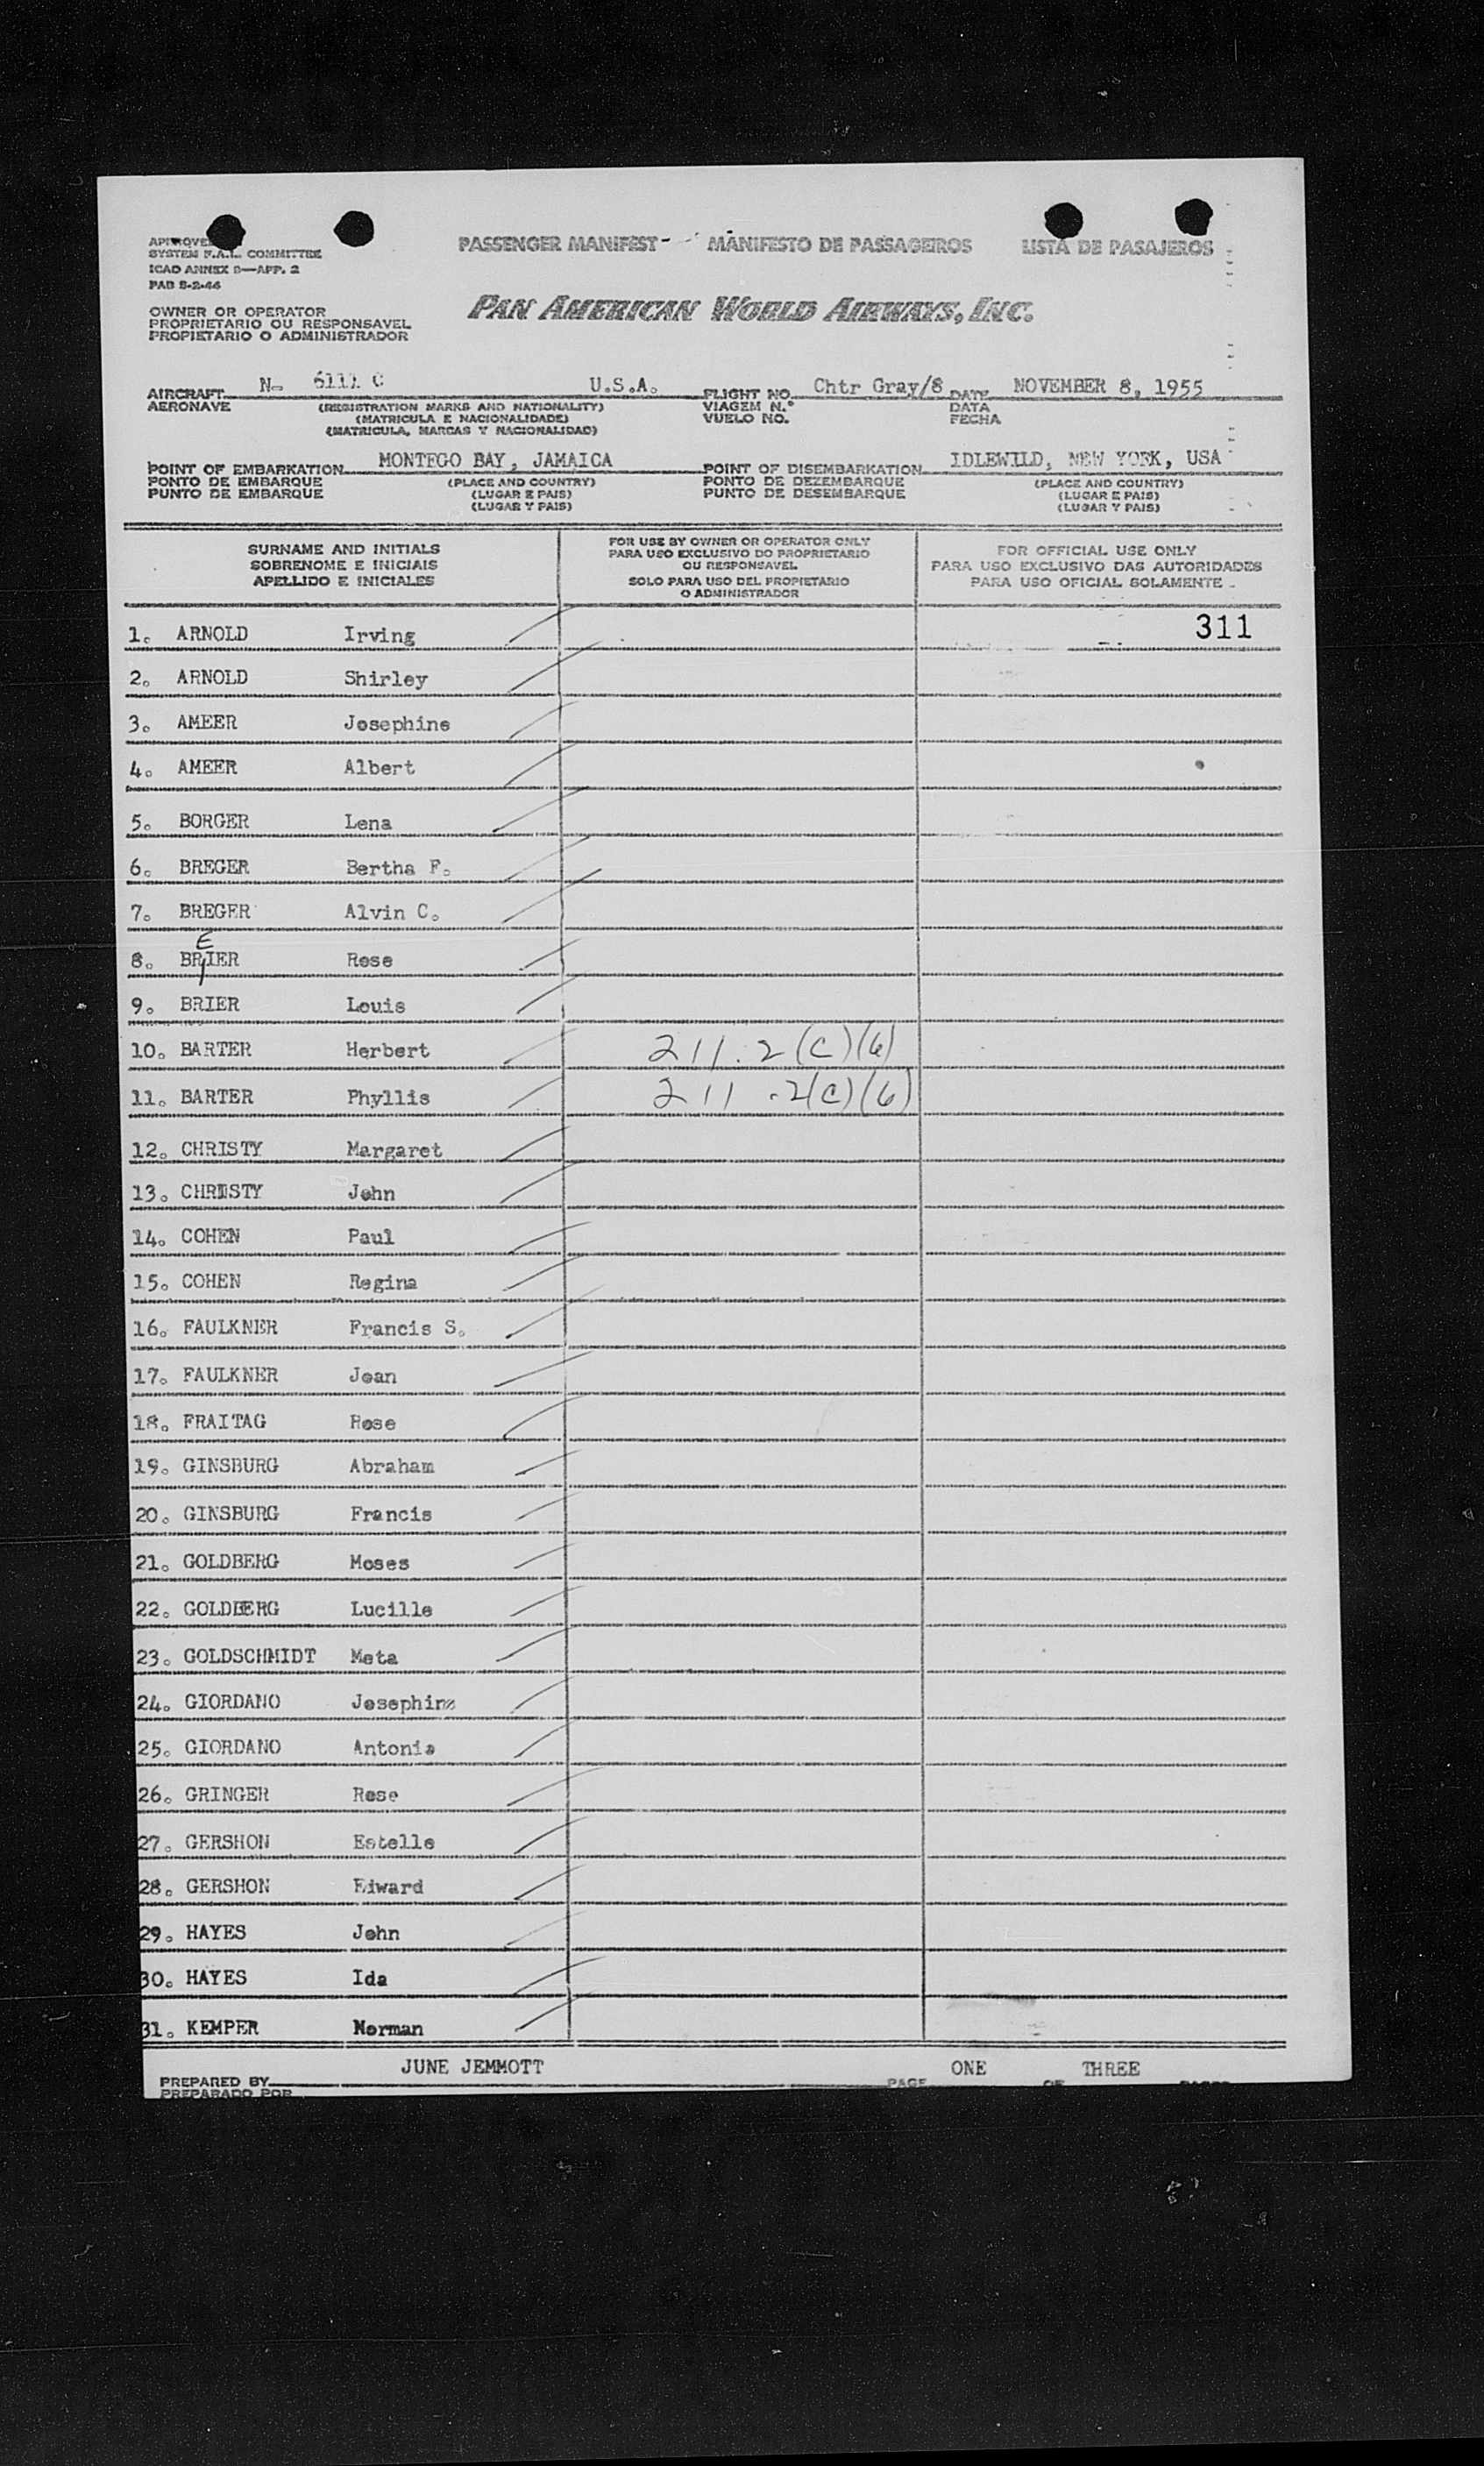 PASSENGER MANIFEST - MANIFESTO DE PASSAGEIROS LISTA DE PASAJEROS
SYSTEM F.A.L. COMMITTEE
ICAO ANNEX 9—APP. 2
PAD 9-2-44
PAN AMERICAN WORLD AIRWAYS, INC.
OWNER OR OPERATOR
PROPRIETARIO OU RESPONSAVEL
PROPIETARIO O ADMINISTRADOR
AIRCRAFT N- 6111 C U.S.A. FLIGHT NO. Chtr Gray/8 DATE NOVEMBER 8, 1955
AERONAVE (REGISTRATION MARKS AND NATIONALITY) VIAGEM N.º DATA
(MATRICULA E NACIONALIDADE) VUELO NO. FECHA
(MATRICULA, MARCAS Y NACIONALIDAD)
POINT OF EMBARKATION MONTEGO BAY, JAMAICA POINT OF DISEMBARKATION IDLEWILD, NEW YORK, USA
PONTO DE EMBARQUE (PLACE AND COUNTRY) PONTO DE DEZEMBARQUE (PLACE AND COUNTRY)
PUNTO DE EMBARQUE (LUGAR E PAIS) PUNTO DE DESEMBARQUE (LUGAR E PAIS)
(LUGAR Y PAIS) (LUGAR Y PAIS)
SURNAME AND INITIALS
SOBRENOME E INICIAIS
APELLIDO E INICIALES
FOR USE BY OWNER OR OPERATOR ONLY
PARA USO EXCLUSIVO DO PROPRIETARIO
OU RESPONSAVEL
SOLO PARA USO DEL PROPIETARIO
O ADMINISTRADOR
FOR OFFICIAL USE ONLY
PARA USO EXCLUSIVO DAS AUTORIDADES
PARA USO OFICIAL SOLAMENTE
1. ARNOLD Irving 311
2. ARNOLD Shirley
3. AMEER Josephine
4. AMEER Albert
5. BORGER Lena
6. BREGER Bertha F.
7. BREGER Alvin C.
E
8. BRIER Rose
9. BRIER Louis
10. BARTER Herbert 211.2(C)(6)
11. BARTER Phyllis 211.2(C)(6)
12. CHRISTY Margaret
13. CHRISTY John
14. COHEN Paul
15. COHEN Regina
16. FAULKNER Francis S.
17. FAULKNER Jean
18. FRAITAG Rose
19. GINSBURG Abraham
20. GINSBURG Francis
21. GOLDBERG Moses
22. GOLDBERG Lucille
23. GOLDSCHMIDT Meta
24. GIORDANO Josephine
25. GIORDANO Antonia
26. GRINGER Rose
27. GERSHON Estelle
28. GERSHON Edward
29. HAYES John
30. HAYES Ida
31. KEMPER Norman
PREPARED BY JUNE JEMMOTT PAGE ONE OF THREE
PREPARADO POR